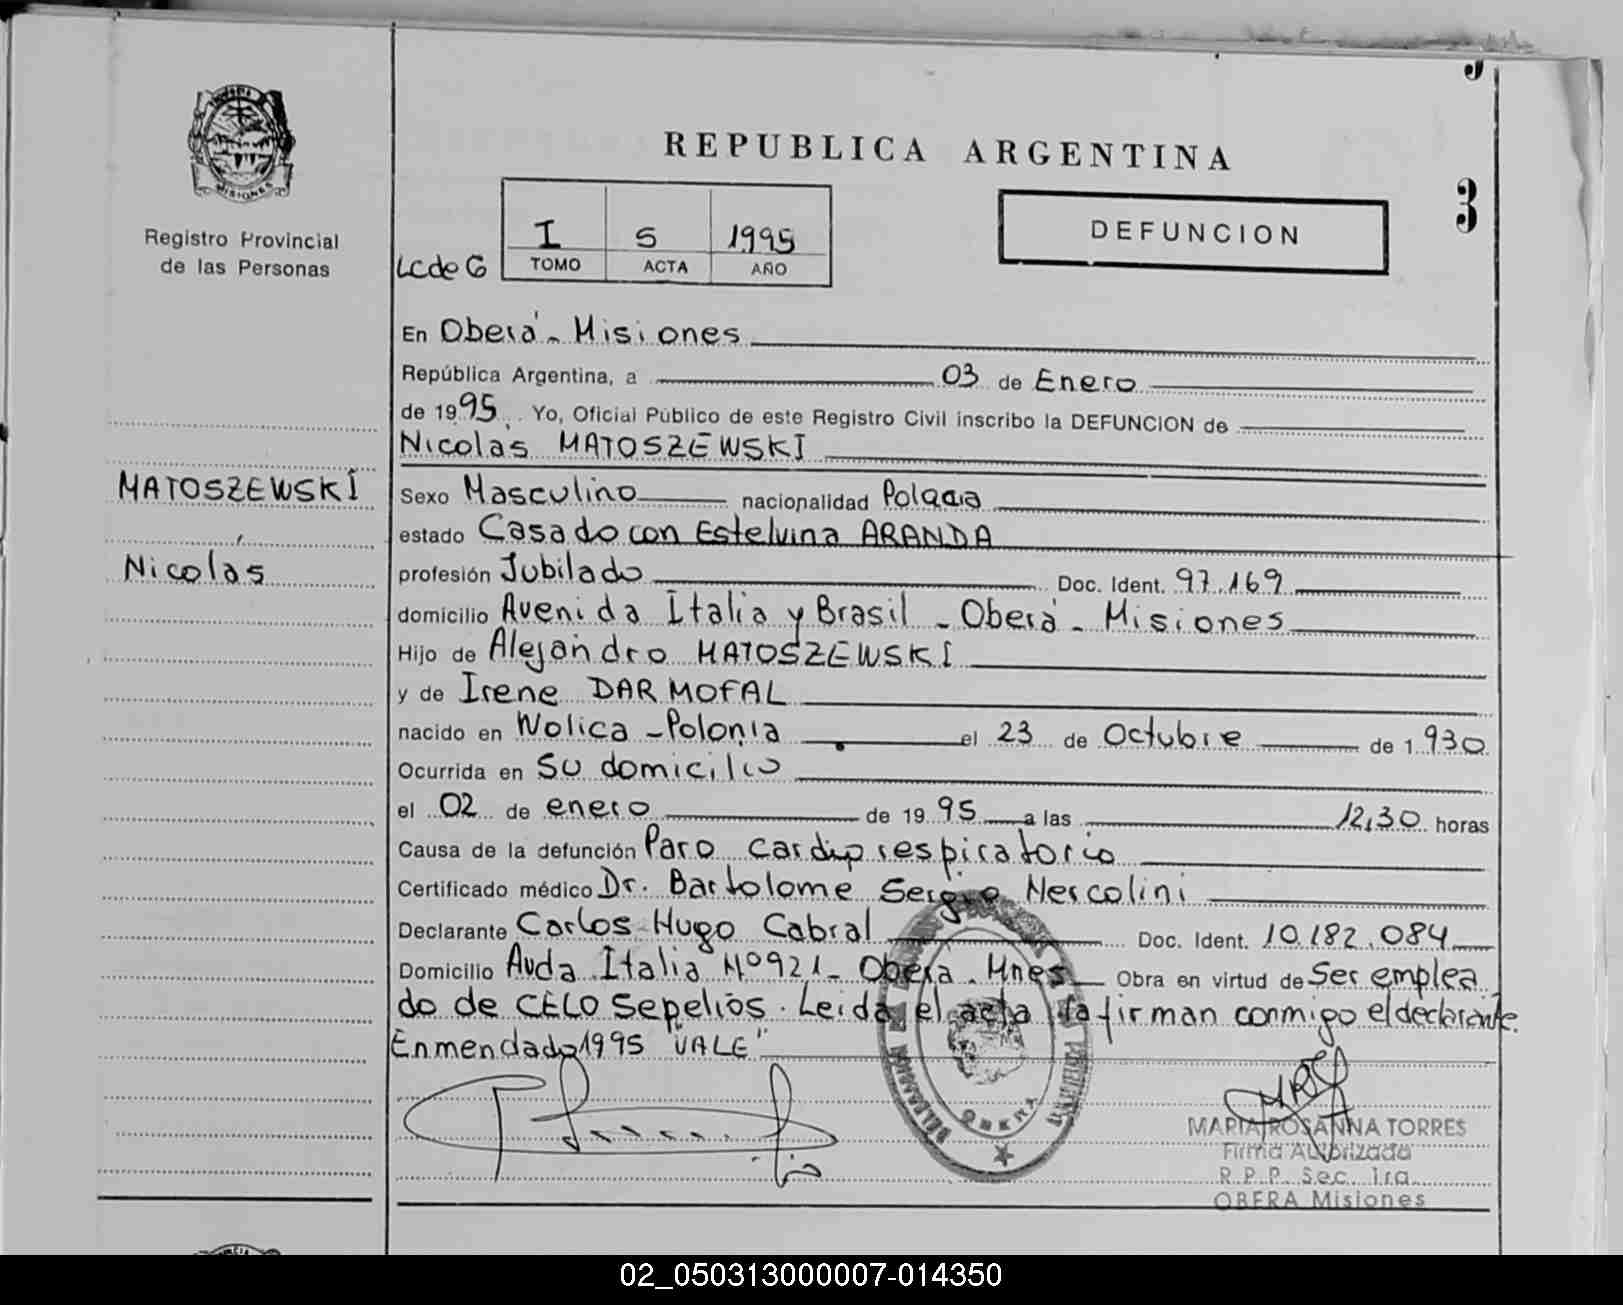 REPUBLICA ARGENTINA
3
DEFUNCION
MISIONES
Registro Provincial
de las Personas
LC de G
I 5 1995
TOMO ACTA AÑO
En Oberá - Misiones
República Argentina, a 03 de Enero
de 1995 Yo, Oficial Público de este Registro Civil inscribo la DEFUNCION de
Nicolás MATOSZEWSKI
MATOSZEWSKI
Nicolás
Sexo Masculino nacionalidad Polaca
estado Casado con Estelvina ARANDA
profesión Jubilado Doc. Ident. 97.169
domicilio Avenida Italia y Brasil - Oberá - Misiones
Hijo de Alejandro MATOSZEWSKI
y de Irene DARMOFAL
nacido en Wolica - Polonia el 23 de Octubre de 1.930
Ocurrida en su domicilio
el 02 de enero de 1995 a las 12,30 horas
Causa de la defunción Paro cardiorespiratorio
Certificado médico Dr. Bartolome Sergio Mercolini
Declarante Carlos Hugo Cabral Doc. Ident. 10.182.084
Domicilio Avda Italia Nº 921 - Obera - Mnes Obra en virtud de Ser emplea
do de CELO Sepelios. Leida el acta la firman conmigo el declarante.
Enmendado 1995 "VALE"
OBERA
MARIA ROSANNA TORRES
Firma Autorizada
R.P.P. Sec. 1ra.
OBERA Misiones
02_050313000007-014350